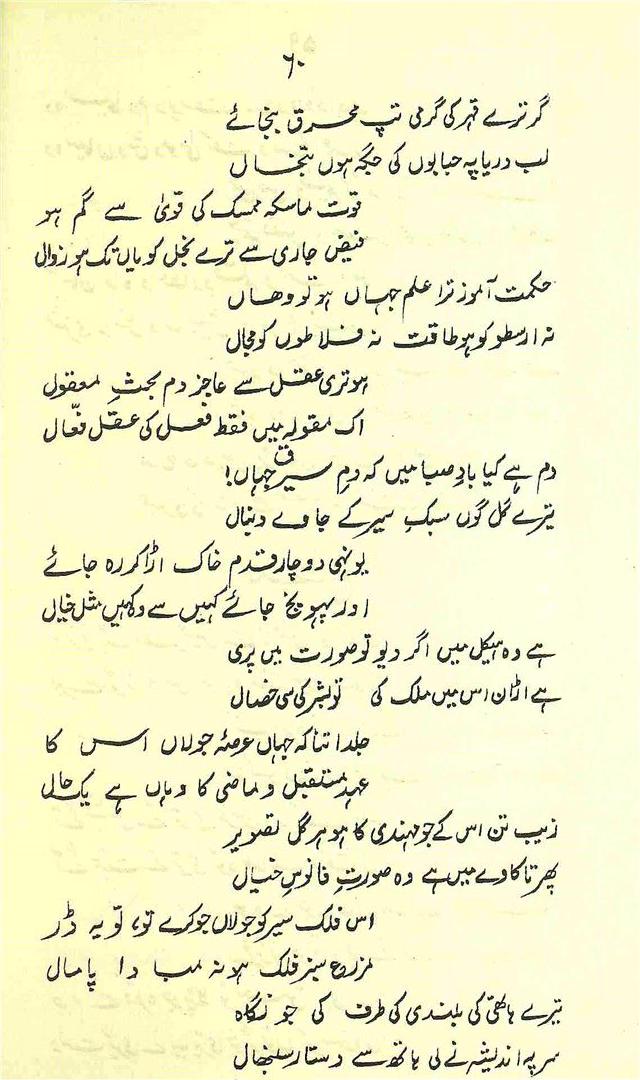 ۶۰
گر ترے قہر کی گرمی تپ محرق بنجائے
لب دریا پہ حبابوں کی جگہ ہوں تبخال
قوت ماسکہ ممسک کی قویٰ سے گم ہو
فیض جاری سے ترے بخل کو یاں تک ہو زوال
حکمت آموز ترا علم جہاں ہو تو وھاں
نہ ارسطو کو ہو طاقت نہ فلاطوں کو مجال
ہو تری عقل سے عاجز دم بحثِ معقول
اک مقولہ میں فقط فعل کی عقل فعّال
دم ہے کیا بادِ صبا میں کہ دمِ سیر جہاں!
تیرے گل گوں سبک سیر کے جاوے دنبال
یونہی دو چار قدم خاک اڑا کر رہ جائے
اور پہو پخ جائے کہیں سے وہ کہیں مثل خیال
ہے وہ ہیکل میں اگر دیو تو صورت میں پری
ہے اڑان اس میں ملک کی تو بشر کی سی خصال
جلد اتنا کہ جہاں عرصۂ جولاں اس کا
عہد مستقبل و ماضی کا وہاں ہے یک حال
زیب تن اس کے جو مہندی کا ہو ہر گل تصویر
پھرتا کاوے میں ہے وہ صورتِ فانوسِ خیال
اس فلک سیر کو جولاں جو کرے تو، تو یہ ڈر
مزرع سبز فلک ہو نہ مبادا پامال
تیرے ہاتھی کی بلندی کی طرف کی جو نگاہ
سر پہ اندیشہ نے لی ہاتھ سے دستار سنبھال